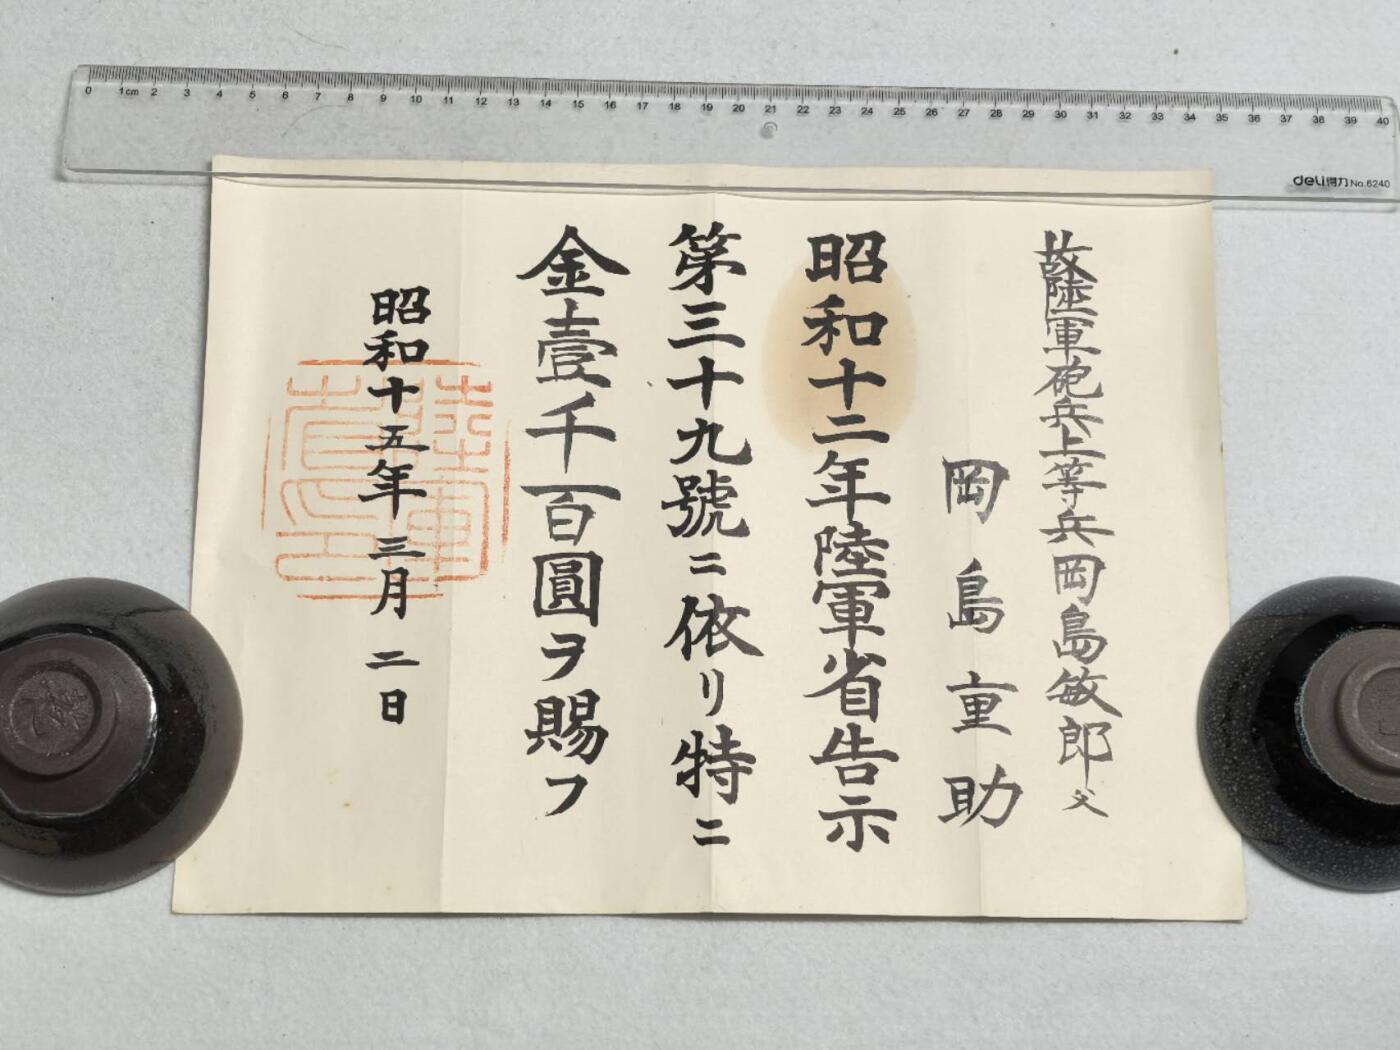 0 1cm 2 3 4 5 6 7 8 9 10 11 12 13 14 15 16 17 18 19 20 21 22 23 24 25 26 27 28 29 30 31 32 33 34 35 36 37 38 39 40
deli得力 No.6240
故陸軍砲兵上等兵岡島敏郎父
岡島重助
昭和十二年陸軍省告示
第三十九號ニ依リ特ニ
金壹千百圓ヲ賜フ
昭和十五年三月二日
陸軍省之印